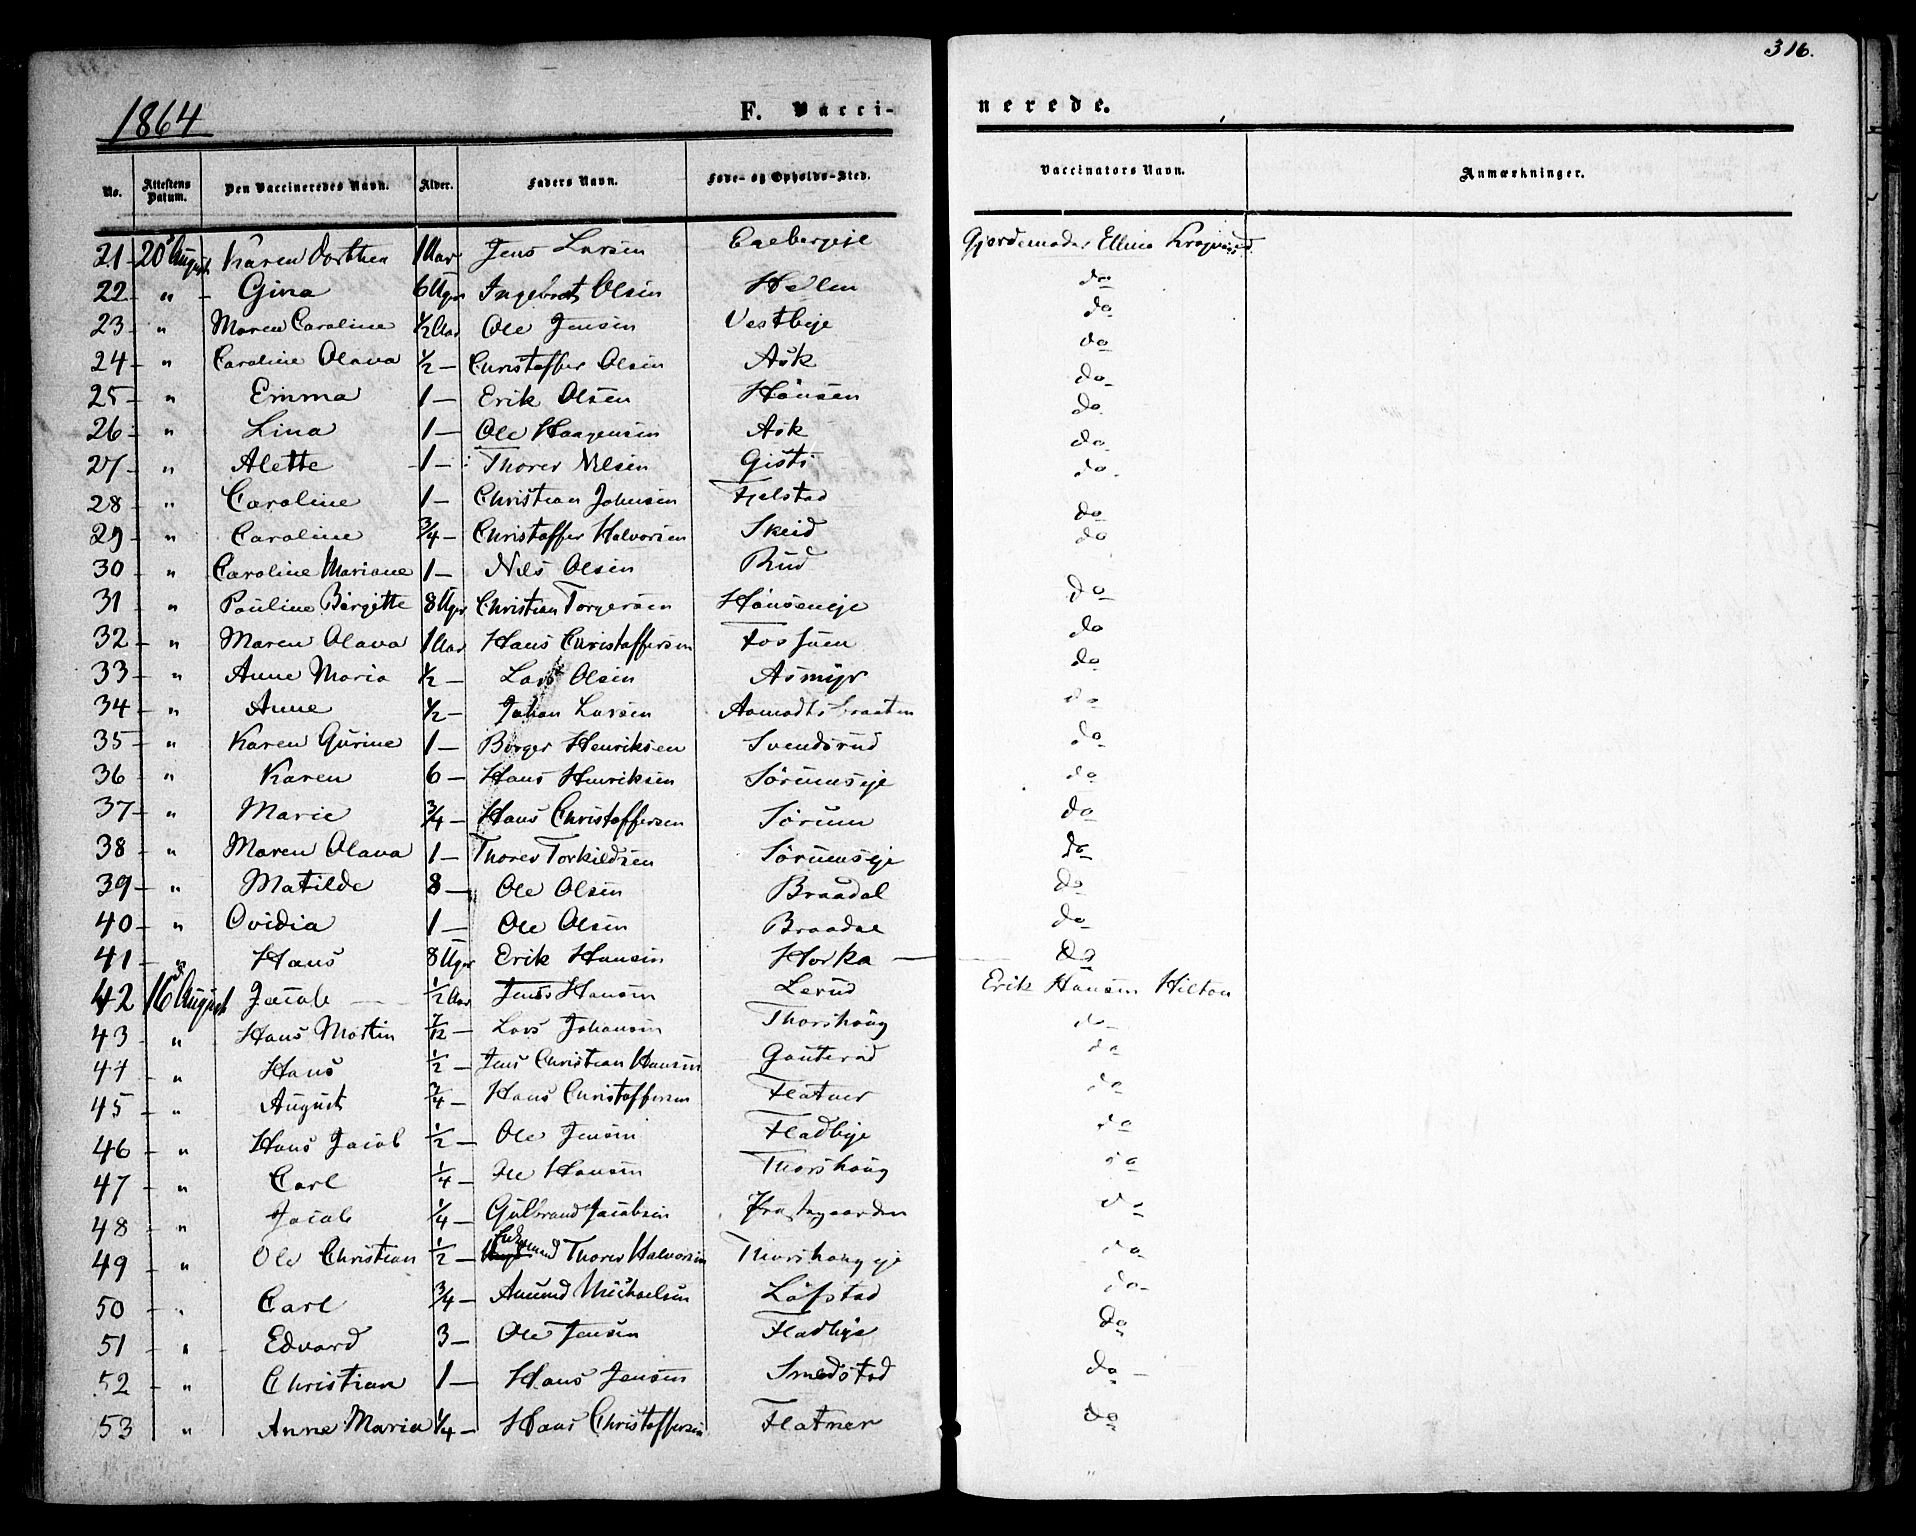 316.
1864 F. Vaccinerede.
No. Attestens Datum. Den Vaccineredes Navn. Alder. Faders Navn. Føde- og Opholds-Sted. Vaccinators Navn. Anmærkninger.
21 - 20 August Karen Dorthea 1 Aar Jens Larsen Gjordemoder Elline
22 - " - Gina 6 Uger Ingebret Olsen Hellen do
23 - " Maren Caroline 1/2 Aar Ole Jensen Vestbye do
24 - " Caroline Olava 1/2 - Christoffer Olsen Ask do
25 - " Emma 1 - Erik Olsen Hønsen do
26 - " Lina 1 - Ole Haagensen Ask do
27 - " Alette 1 - Thorer Nilsen Gisti do
28 " Caroline 1 - Christian Johnsen Fjelstad do
29 - " Caroline 3/4 - Christoffer Halvorsen Skeid do
30 - " Caroline Mariane 1 - Nils Olsen Rud do
31 - " Pauline Birgitte 8 Uger Christian Torgersen Hønseneje do
32 - " Maren Olava 1 Aar Hans Christoffersen Fossuen do
33 - " Anne Maria 1/2 - Lars Olsen Asmyr do
34 - " Anne 1/2 - Johan Larsen Aamodtsbraaten do
35 - " Karen Gurine 1 - Børger Henriksen Svendsrud do
36 - " Karen 6 - Hans Henriksen Sørumseje do
37 - " Marie 3/4 - Hans Christoffersen Sørum do
38 - " Maren Olava 1 - Thorer Torkildsen Sørumseje do
39 - " Matilde 8 - Ole Olsen Braadal do
40 - " Ovidia 1 - Ole Olsen Braadal do
41 - " Hans 8 Uger Erik Hansen Horka do
42 - 16 August Jacob 1/2 Aar Jens Hansen Lerud Erik Hansen Hilton
43 - " Hans Martin 7/12 - Lars Johansen Thorshoug do
44 - " Hans 1/2 - Jens Christian Hansen Gauterud do
45 - " August 3/4 - Hans Christoffersen Flatner do
46 - " Hans Jacob 1/2 - Ole Jensen Fladbye do
47 - " Carl 1/4 - Ole Hansen Thorshoug do
48 - " Jacob 1/4 - Gulbrand Jacobsen Præstegaarden do
49 - " Ole Christian 1/2 - Thorer Halvorsen Thorshougeje do
50 - " Carl 3/4 - Amund Michaelsen Løfstad do
51 " Edvard 3 - Ole Jensen Fladbye do
52 - " Christian 1 - Hans Jensen Smedstad do
53 " Anne Maria 1/4 - Hans Christoffersen Flatner do